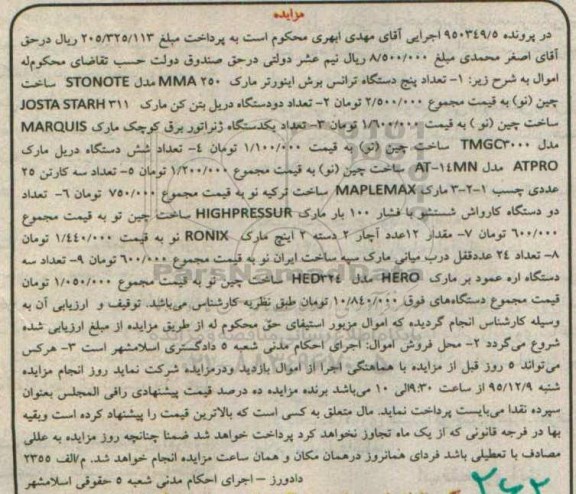 مزایده
در پرونده ۹۵۰۳۴۹/۵ اجرایی آقای مهدی ابهری محکوم است به پرداخت مبلغ ۲۰۵/۳۲۵/۱۱۳ ریال درحق
آقای اصغر محمدی مبلغ ۸/۵۰۰/۰۰۰ ریال نیم عشر دولتی درحق صندوق دولت حسب تقاضای محکوم‌له
اموال به شرح زیر: ۱- تعداد پنج دستگاه ترانس برش اینورتر مارک MMA ۲۵۰ مدل STONOTE ساخت
چین (نو) به قیمت مجموع ۲/۵۰۰/۰۰۰ تومان ۲- تعداد دودستگاه دریل بتن کن مارک JOSTA STARH ۳۱۱
ساخت چین (نو) به قیمت ۱/۶۰۰/۰۰۰ تومان ۳- تعداد یکدستگاه ژنراتور برق کوچک مارک MARQUIS
مدل TMGC۳۰۰۰ ساخت چین (نو) به قیمت ۱/۱۰۰/۰۰۰ تومان ۴- تعداد شش دستگاه دریل مارک
ATPRO مدل AT-۱٤MN ساخت چین (نو) به قیمت مجموع ۱/۲۰۰/۰۰۰ تومان ۵- تعداد سه کارتن ۲۵
عددی چسب ۱-۲-۳ مارک MAPLEMAX ساخت ترکیه نو به قیمت مجموع ۷۵۰/۰۰۰ تومان ۶- تعداد
دو دستگاه کارواش شستشو با فشار ۱۰۰ بار مارک HIGHPRESSUR ساخت چین نو به قیمت مجموع
۶۰۰/۰۰۰ تومان ۷- مقدار ۱۲عدد آچار ۲ دسته ۲ اینچ مارک RONIX نو به قیمت ۱/٤٤۰/۰۰۰ تومان
۸- تعداد ۲٤ عددقفل درب میانی مارک سپه ساخت ایران نو به قیمت مجموع ۶۰۰/۰۰۰ تومان ۹- تعداد سه
دستگاه اره عمود بر مارک HERO مدل HED۳۲٤ ساخت چین نو به قیمت مجموع ۱/۰۵۰/۰۰۰ تومان
قیمت مجموع دستگاه‌های فوق ۱۰/۸٤۰/۰۰۰ تومان طبق نظریه کارشناس می‌باشد. توقیف و ارزیابی آن به
وسیله کارشناس انجام گردیده که اموال مزبور استیفای حق محکوم له از طریق مزایده از مبلغ ارزیابی شده
شروع می‌گردد ۲- محل فروش اموال: اجرای احکام مدنی شعبه ۵ دادگستری اسلامشهر است ۳- هرکس
می‌تواند ۵ روز قبل از مزایده با هماهنگی اجرا از اموال بازدید ودرمزایده شرکت نماید روز انجام مزایده
شنبه ۹۵/۱۲/۹ از ساعت ۹:۳۰الی ۱۰ می‌باشد برنده مزایده ده درصد قیمت پیشنهادی رافی المجلس بعنوان
سپرده نقدا می‌بایست پرداخت نماید. مال متعلق به کسی است که بالاترین قیمت را پیشنهاد کرده است وبقیه
بها در فرجه قانونی که از یک ماه تجاوز نخواهد کرد پرداخت خواهد شد ضمنا چنانچه روز مزایده به عللی
مصادف با تعطیلی باشد فردای همانروز درهمان مکان و همان ساعت مزایده انجام خواهد شد. م/الف ۲۳۵۵
دادورز – اجرای احکام مدنی شعبه ۵ حقوقی اسلامشهر
۲۶۲
ParsNamadData